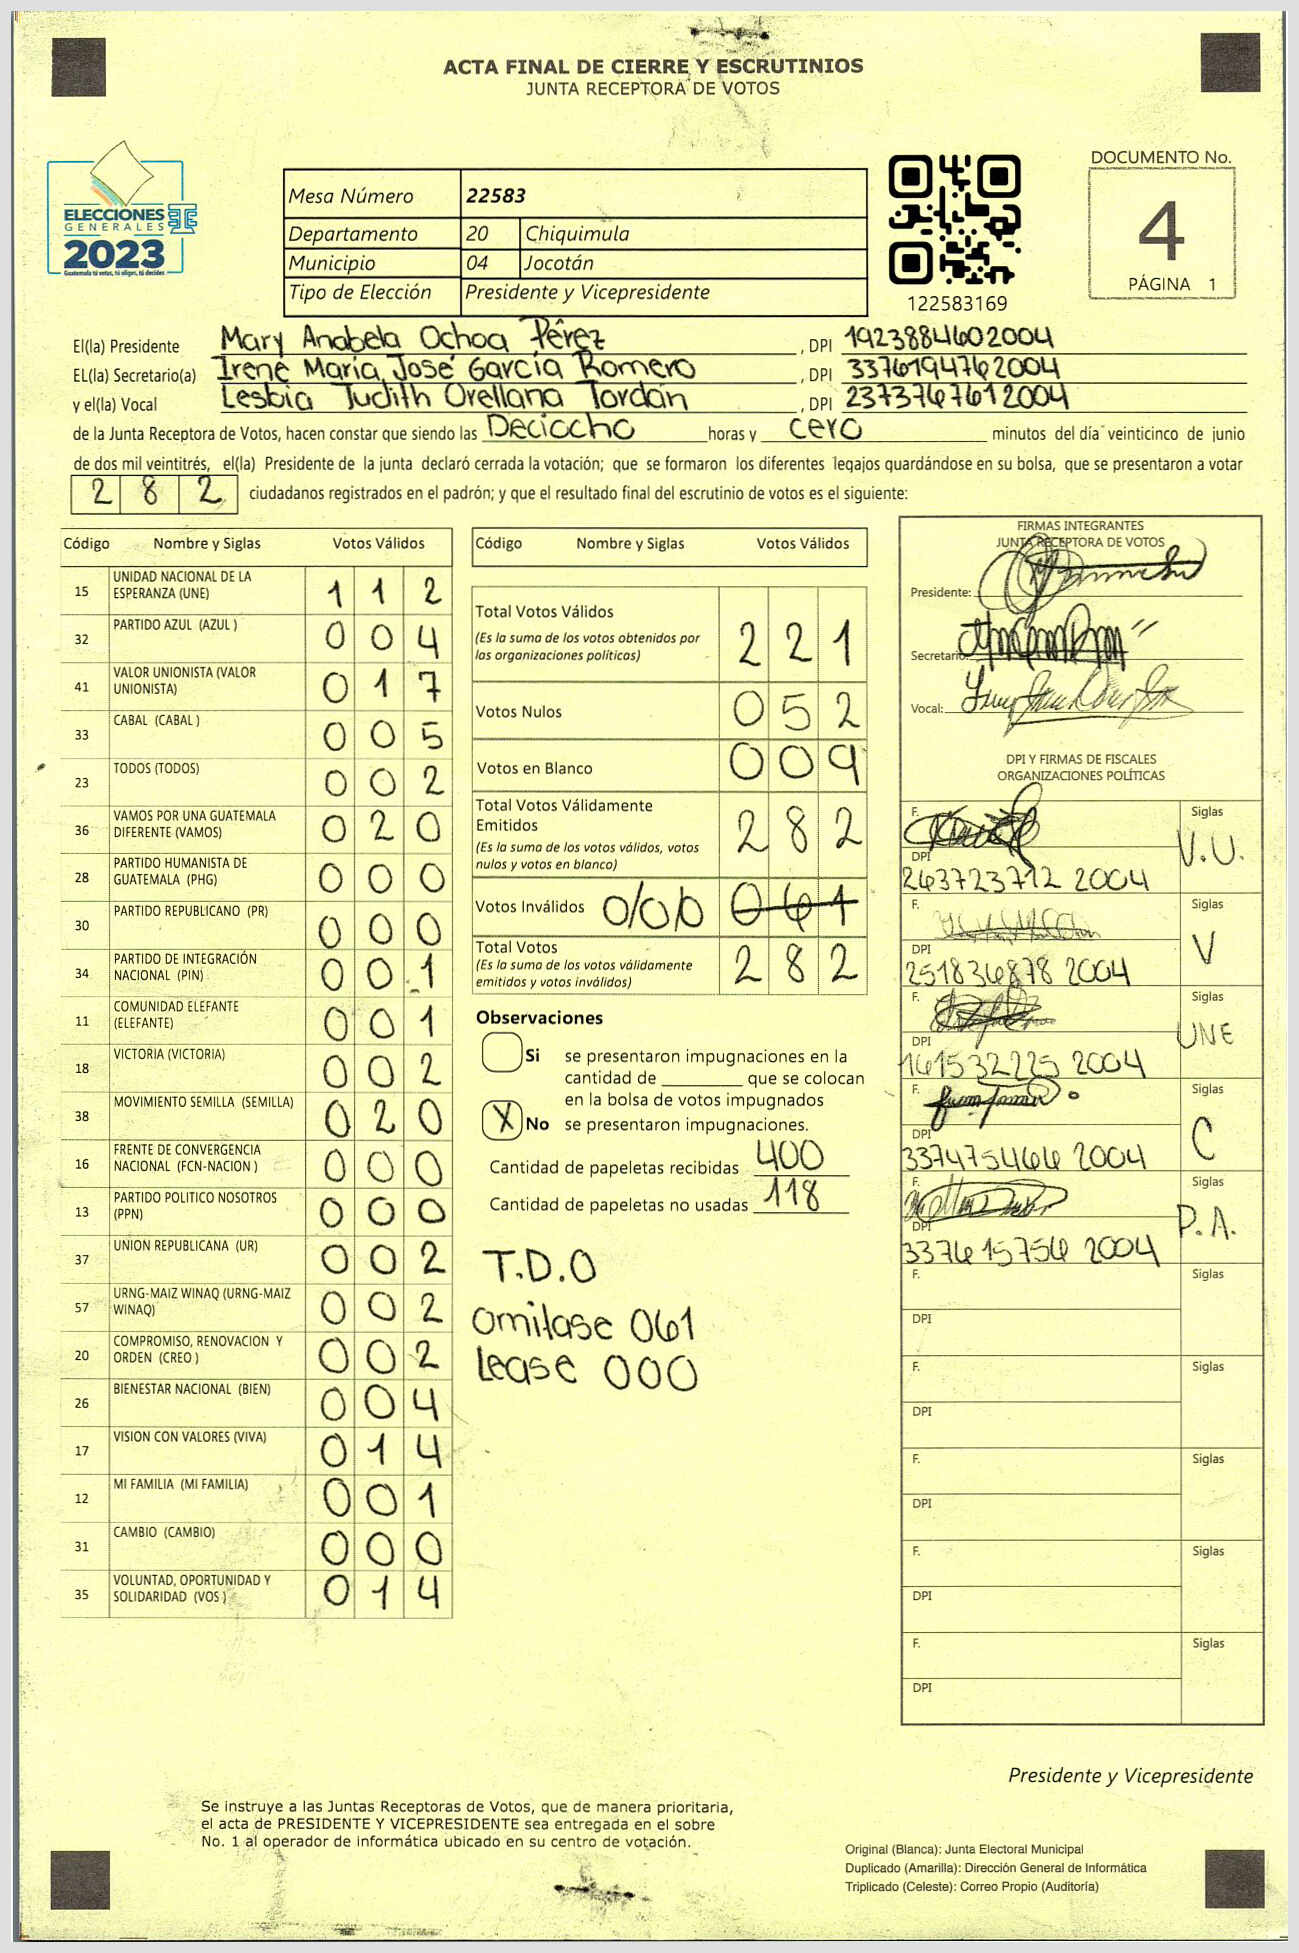 ACTA FINAL DE CIERRE Y ESCRUTINIOS
JUNTA RECEPTORA DE VOTOS
ELECCIONES
GENERALES
2023
Guatemala tú votas, tú eliges, tú decides
Mesa Número 22583
Departamento 20 Chiquimula
Municipio 04 Jocotán
Tipo de Elección Presidente y Vicepresidente
122583169
DOCUMENTO No.
4
PÁGINA 1
El(la) Presidente Mary Anabela Ochoa Pérez, DPI 1923884602004
EL(la) Secretario(a) Irene María José García Romero, DPI 3376194762004
y el(la) Vocal Lesbia Judith Orellana Jordán, DPI 2373767612004
de la Junta Receptora de Votos, hacen constar que siendo las Deciocho horas y cero minutos del día veinticinco de junio
de dos mil veintitrés, el(la) Presidente de la junta declaró cerrada la votación; que se formaron los diferentes legajos guardándose en su bolsa, que se presentaron a votar
282 ciudadanos registrados en el padrón; y que el resultado final del escrutinio de votos es el siguiente:
Código Nombre y Siglas Votos Válidos
15 UNIDAD NACIONAL DE LA ESPERANZA (UNE) 112
32 PARTIDO AZUL (AZUL ) 004
41 VALOR UNIONISTA (VALOR UNIONISTA) 017
33 CABAL (CABAL ) 005
23 TODOS (TODOS) 002
36 VAMOS POR UNA GUATEMALA DIFERENTE (VAMOS) 020
28 PARTIDO HUMANISTA DE GUATEMALA (PHG) 000
30 PARTIDO REPUBLICANO (PR) 000
34 PARTIDO DE INTEGRACIÓN NACIONAL (PIN) 001
11 COMUNIDAD ELEFANTE (ELEFANTE) 001
18 VICTORIA (VICTORIA) 002
38 MOVIMIENTO SEMILLA (SEMILLA) 020
16 FRENTE DE CONVERGENCIA NACIONAL (FCN-NACION ) 000
13 PARTIDO POLITICO NOSOTROS (PPN) 000
37 UNION REPUBLICANA (UR) 002
57 URNG-MAIZ WINAQ (URNG-MAIZ WINAQ) 002
20 COMPROMISO, RENOVACION Y ORDEN (CREO ) 002
26 BIENESTAR NACIONAL (BIEN) 004
17 VISION CON VALORES (VIVA) 014
12 MI FAMILIA (MI FAMILIA) 001
31 CAMBIO (CAMBIO) 000
35 VOLUNTAD, OPORTUNIDAD Y SOLIDARIDAD (VOS ) 014
Código Nombre y Siglas Votos Válidos
Total Votos Válidos 221
(Es la suma de los votos obtenidos por
las organizaciones políticas)
Votos Nulos 052
Votos en Blanco 009
Total Votos Válidamente
Emitidos 282
(Es la suma de los votos válidos, votos
nulos y votos en blanco)
Votos Inválidos 0/0/0 061
Total Votos 282
(Es la suma de los votos válidamente
emitidos y votos inválidos)
Observaciones
Si se presentaron impugnaciones en la
cantidad de ________ que se colocan
en la bolsa de votos impugnados
X No se presentaron impugnaciones.
Cantidad de papeletas recibidas 400
Cantidad de papeletas no usadas 118
T.D.O
omitase 061
lease 000
FIRMAS INTEGRANTES
JUNTA RECEPTORA DE VOTOS
Presidente:
Secretario:
Vocal:
DPI Y FIRMAS DE FISCALES
ORGANIZACIONES POLÍTICAS
F. Siglas V.U.
DPI 263723712 2004
F. Siglas V
DPI 251836878 2004
F. Siglas UNE
DPI 161532225 2004
F. Siglas C
DPI 337475466 2004
F. Siglas P.A.
DPI 337615756 2004
F. Siglas
DPI
F. Siglas
DPI
F. Siglas
DPI
F. Siglas
DPI
F. Siglas
DPI
Presidente y Vicepresidente
Se instruye a las Juntas Receptoras de Votos, que de manera prioritaria,
el acta de PRESIDENTE Y VICEPRESIDENTE sea entregada en el sobre
No. 1 al operador de informática ubicado en su centro de votación.
Original (Blanca): Junta Electoral Municipal
Duplicado (Amarilla): Dirección General de Informática
Triplicado (Celeste): Correo Propio (Auditoría)